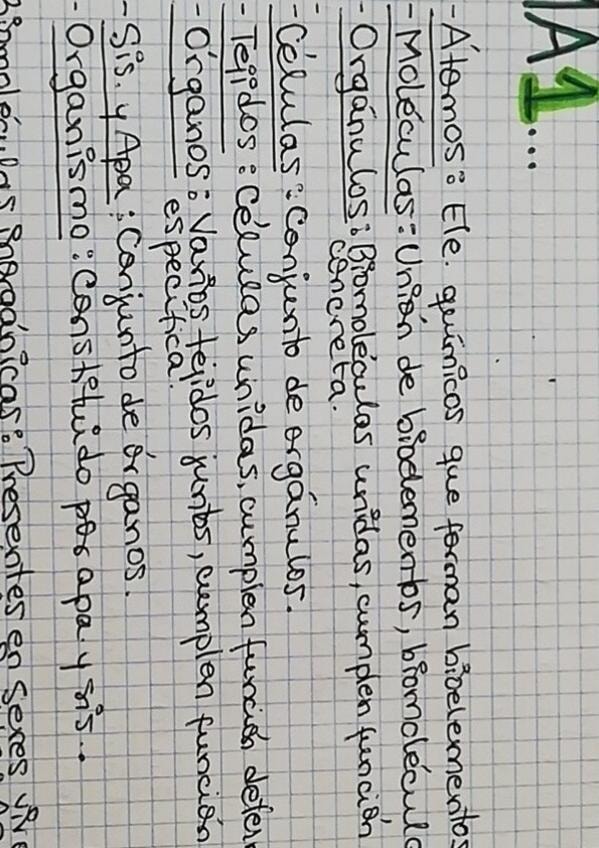 MA 1...
- Átomos: Ele. químicos que forman bioelementos
- Moléculas: Unión de bioelementos, biomolécul
- Orgánulos: Biomoléculas unidas, cumplen función
concreta.
- Células: Conjunto de orgánulos.
- Tejidos: Células unidas, cumplen función deter
- Órganos: Varios tejidos juntos, cumplen función
específica.
- Sis. y Apa: Conjunto de órganos.
- Organismo: Constituido por apa. y sis...
Biomoléculas Inorgánicas: Presentes en seres viv